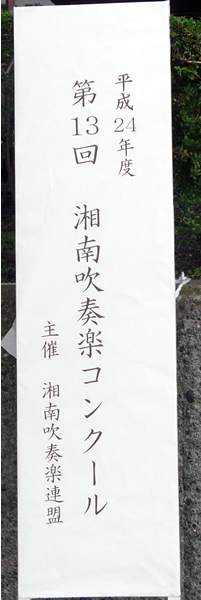 平成24年度
第13回 湘南吹奏楽コンクール
主催 湘南吹奏楽連盟